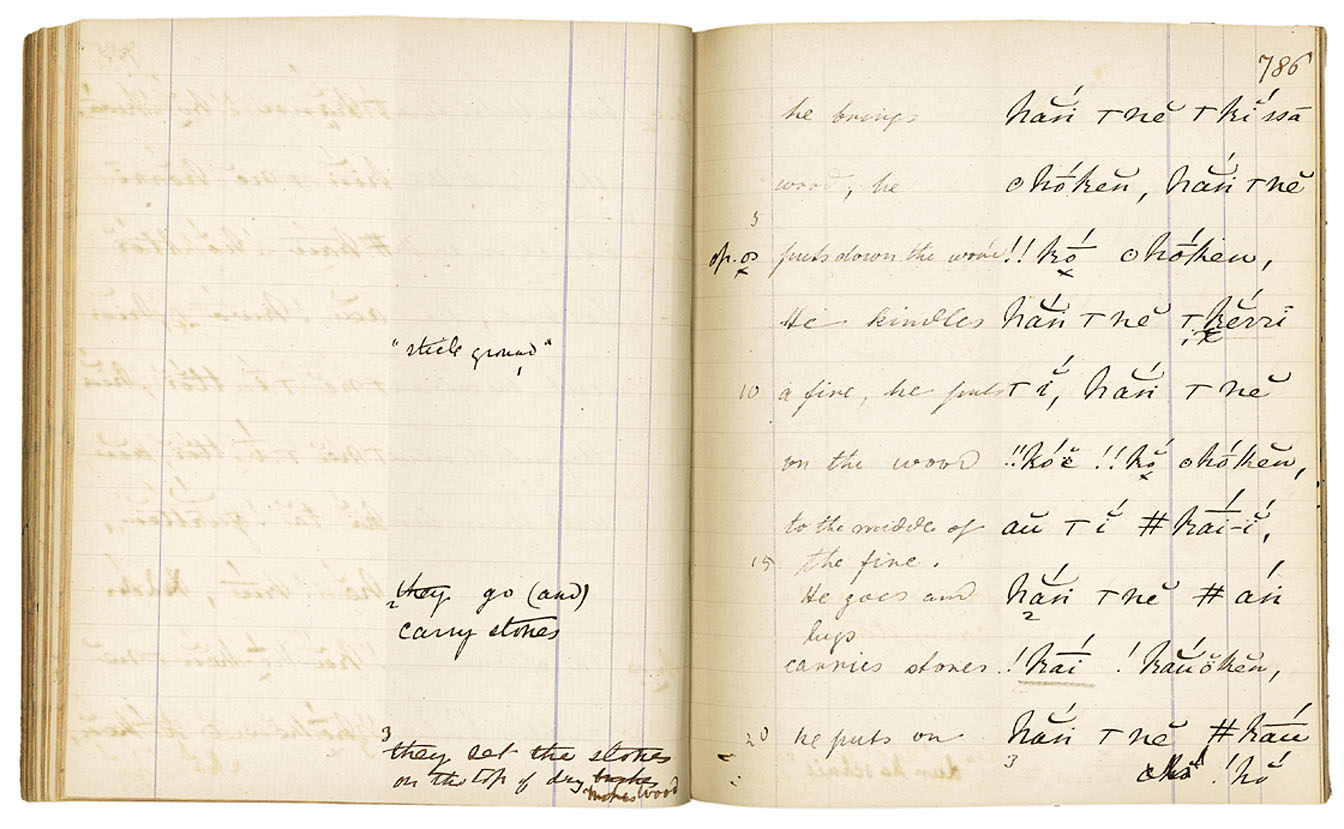 "stick ground"
2 they go (and)
carry stones
3
they set the stones
on the top of dry wood
786
he brings hăń ⊤nĕ ⊤kı́ssā
wood, he ʘhóken, hăń ⊤nĕ
5
op. os puts down the wood !!kó ʘhóken,
He kindles hăń ⊤nĕ ⊤kĕ́rrĭ
10 a fire, he puts ⊤ı̆́, hăń ⊤nĕ
on the wood !!kóĕ !!kŏ́ ʘhókĕn,
to the middle of aŭ ⊤ı̆́ #kái-ı̆́,
15 the fire.
He goes and hăń ⊤nĕ #áń
2
lugs
carries stones !kāı́ !kăúŏkĕn,
20 he puts on hăń ⊤nĕ #kāú
3
!hŏ́